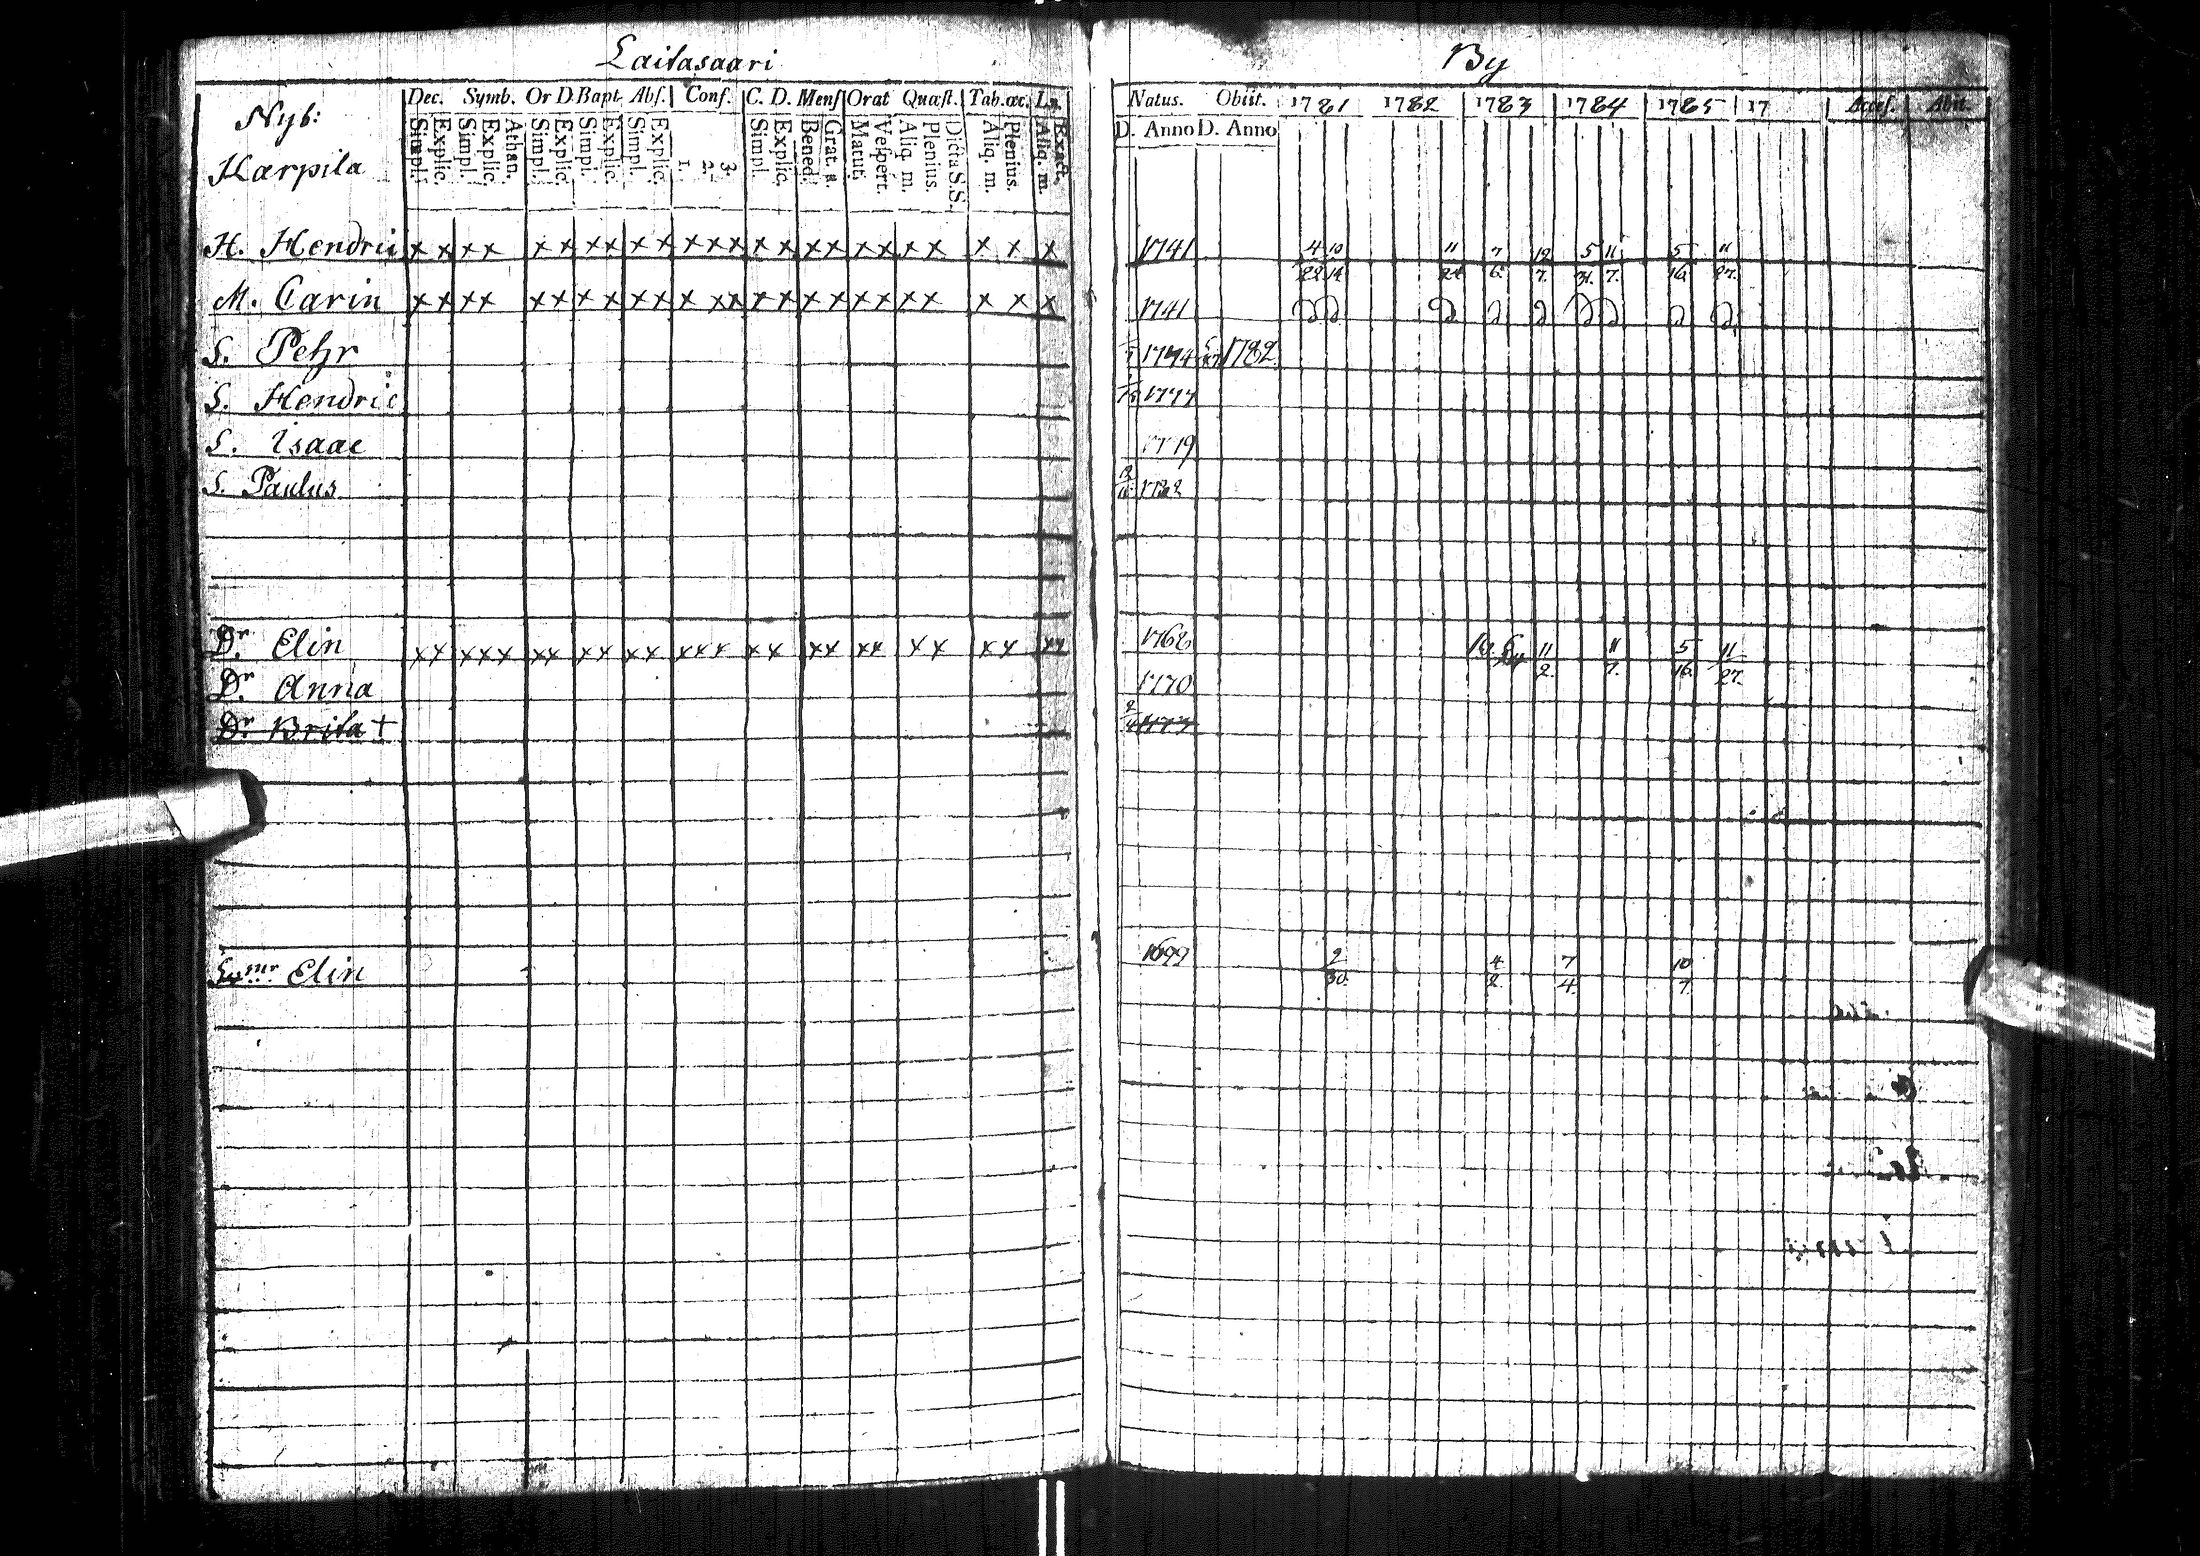 Laitasaari By
Dec. Symb. Or D Bapt Abs. Conf. C. D. Mens Orat Quæst. Tab. œc. Natus. Obiit. 1781 1782 1783 1784 1785 17 Acces. Abit.
Nyb:
Simpl. Explic. Simpl. Explic. Athan. Simpl. Explic. Simpl. Explic. Simpl. Explic. 1. 2. 3. Simpl. Explic. Bened. Grat. a. Matut. Vespert. Aliq. m. Plenius. Dicta S.S. Aliq. m. Plenius. Aliq. m. Exact. D. Anno D. Anno
Karpila
H. Hendric x x x x x x x x x x x x x x x x x x x x x x x x 1741 4/22 10/14 11/24 7/6. 12/7. 5/31. 11/7. 5/16. 11/27.
M. Carin x x x x x x x x x x x x x x x x x x x x x x x x 1741
S. Pehr 1774 1782
S. Hendric 1777
S. Isaac 1779
S. Paulus 1782
Dr. Elin x x x x x x x x x x x x x x x x x x x x x x x x x x 1768 11/2. 11/7. 5/16. 11/27.
Dr. Anna 1770
Dr. Brita † 1773
Elin 1699 9/30. 4/2. 7/4. 10/7.